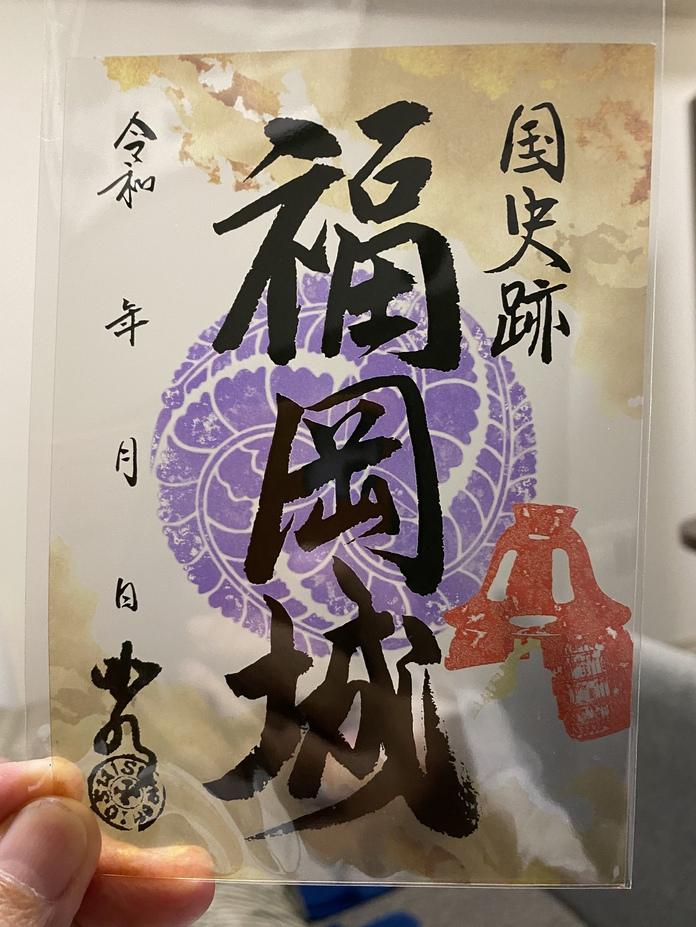 国史跡
福岡城
令和 年 月 日